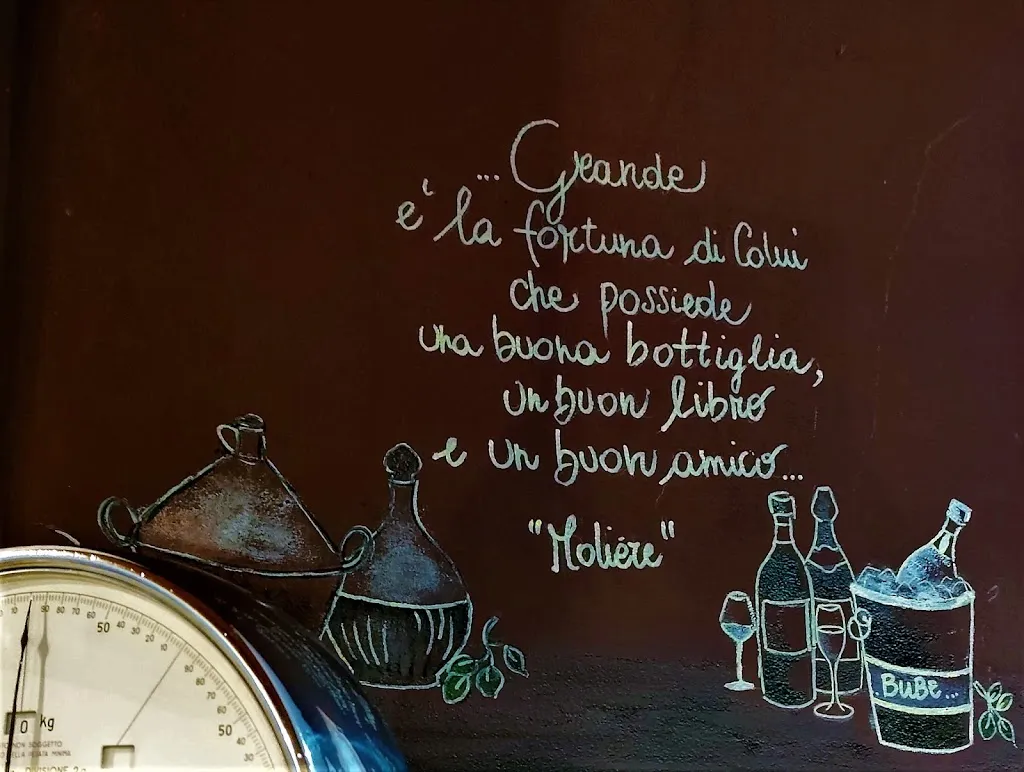 ... Grande
e' la fortuna di Colui
che possiede
una buona bottiglia,
un buon libro
e un buon amico...
"Moliére"
BuBe...
90 80 70 60 50 40 30 20 10
90 80 70 60 50 40 30
0 kg
NON SOGGETTO
DELLA PESATA MINIMA
DIVISIONE 2g